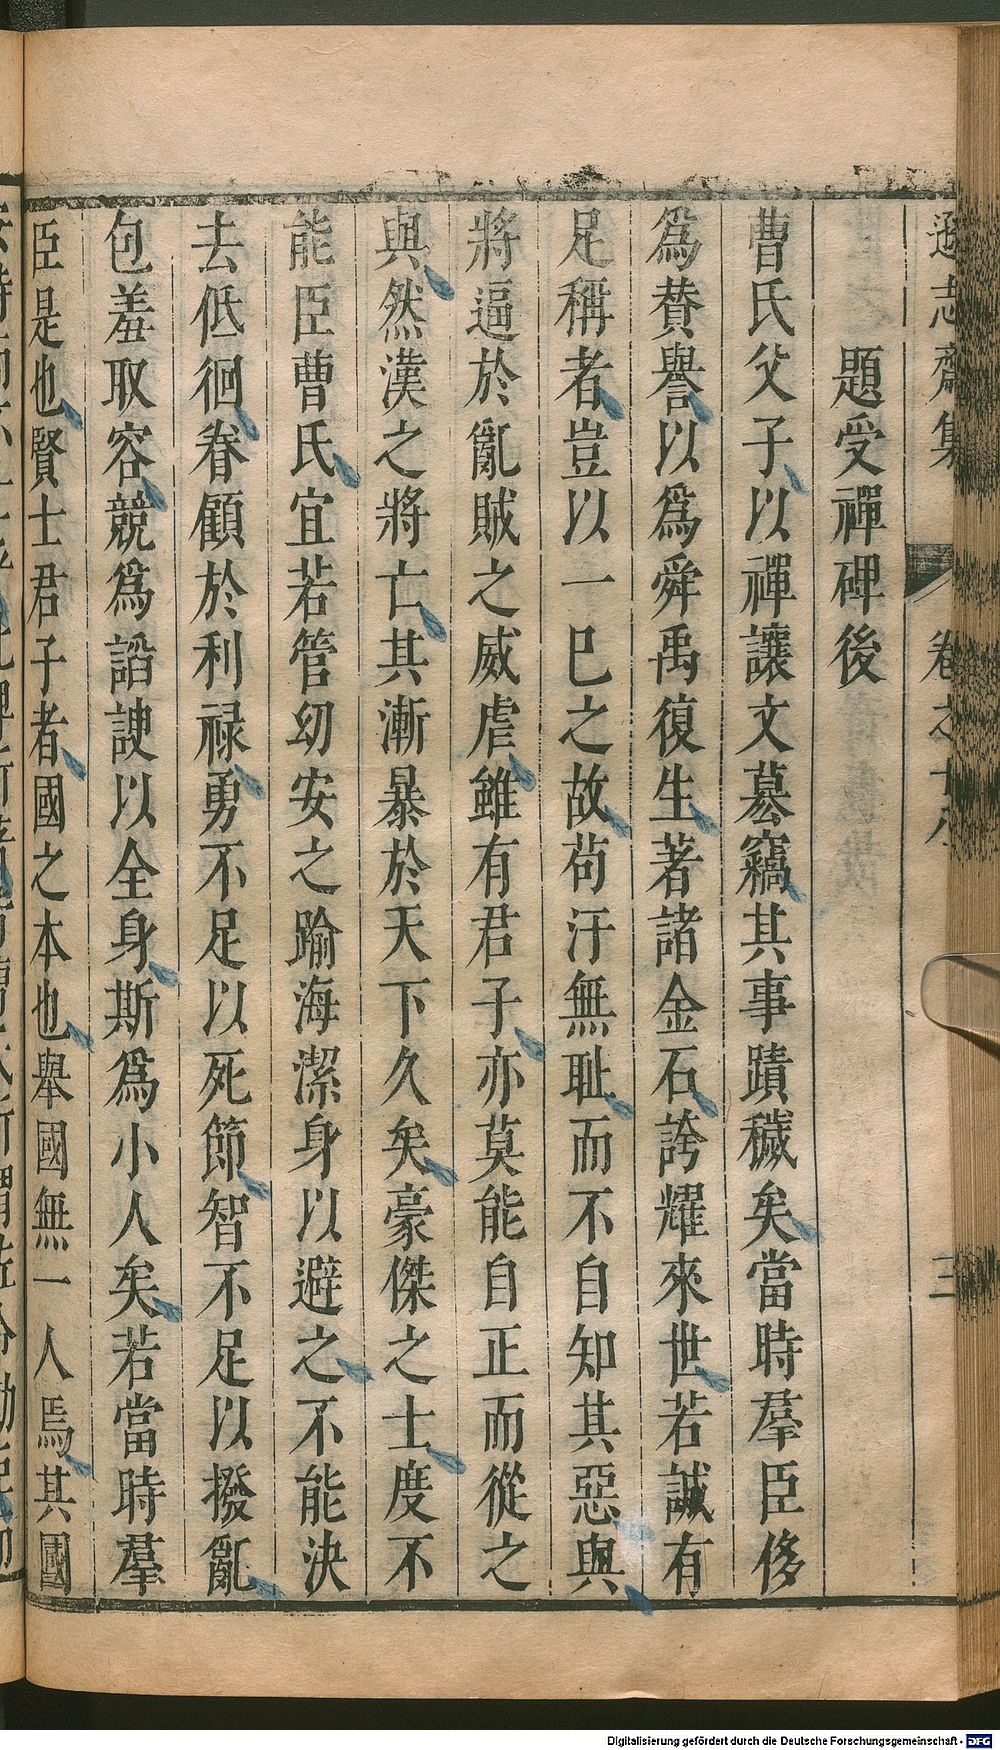 遜志齋集 卷之十八 三
題受禪碑後
曹氏父子以禪讓文墓竊其事蹟穢矣當時羣臣侈
爲賛譽以爲舜禹復生著諸金石誇耀來世若誠有
足稱者豈以一巳之故苟汙無耻而不自知其惡與
將逼於亂賊之威虐雖有君子亦莫能自正而從之
與然漢之將亡其漸暴於天下久矣豪傑之士度不
能臣曹氏宜若管幼安之踰海潔身以避之不能決
去低徊眷顧於利祿勇不足以死節智不足以撥亂
包羞取容競爲諂諛以全身斯爲小人矣若當時羣
臣是也賢士君子者國之本也舉國無一人焉其國
Digitalisierung gefördert durch die Deutsche Forschungsgemeinschaft - DFG